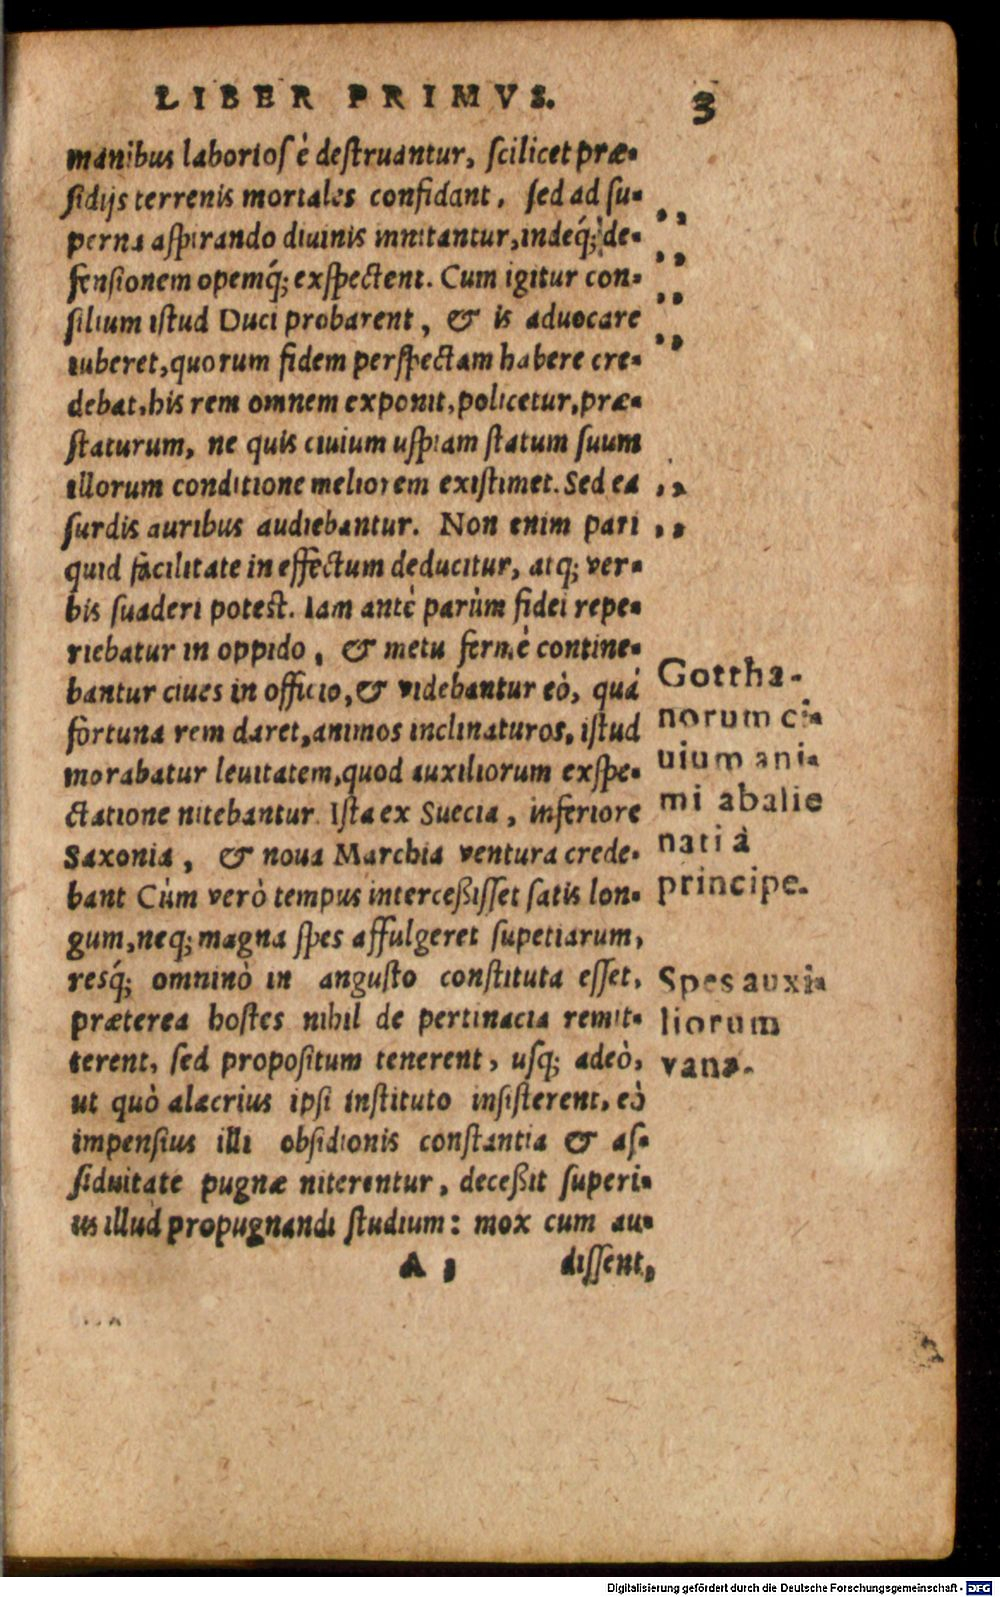 LIBER PRIMVS. 3
manibus laboriosè destruantur, scilicet præ-
sidijs terrenis mortales confidant, sed ad su-
perna aspirando diuinis innitantur, indeq́; de-
fensionem opemq́; exspectent. Cum igitur con-
silium istud Duci probarent, & is aduocare
iuberet, quorum fidem perspectam habere cre-
debat, his rem omnem exponit, policetur, præ-
staturum, ne quis ciuium uspiam statum suum
illorum conditione meliorem existimet. Sed ea
surdis auribus audiebantur. Non enim pari
quid facilitate in effectum deducitur, atq; ver-
bis suaderi potest. Iam antè parùm fidei repe-
riebatur in oppido, & metu fermè contine-
bantur ciues in officio, & videbantur eò, quá
fortuna rem daret, animos inclinaturos, istud
morabatur leuitatem, quod auxiliorum exspe-
ctatione nitebantur. Ista ex Suecia, inferiore
Saxonia, & noua Marchia ventura crede-
bant Cùm verò tempus intercessisset satis lon-
gum, neq; magna spes affulgeret supetiarum,
resq́; omninò in angusto constituta esset,
præterea hostes nihil de pertinacia remit-
terent, sed propositum tenerent, usq; adeò,
ut quò alacrius ipsi instituto insisterent, eò
impensius illi obsidionis constantia & as-
siduitate pugnæ niterentur, decessit superi-
us illud propugnandi studium: mox cum au-
A 3 dissent,
,,
,,
,,
,,
,,
,,
Gottha-
norum ci-
uium ani-
mi abalie
nati à
principe.
Spes auxi-
liorum
vana.
Digitalisierung gefördert durch die Deutsche Forschungsgemeinschaft - DFG